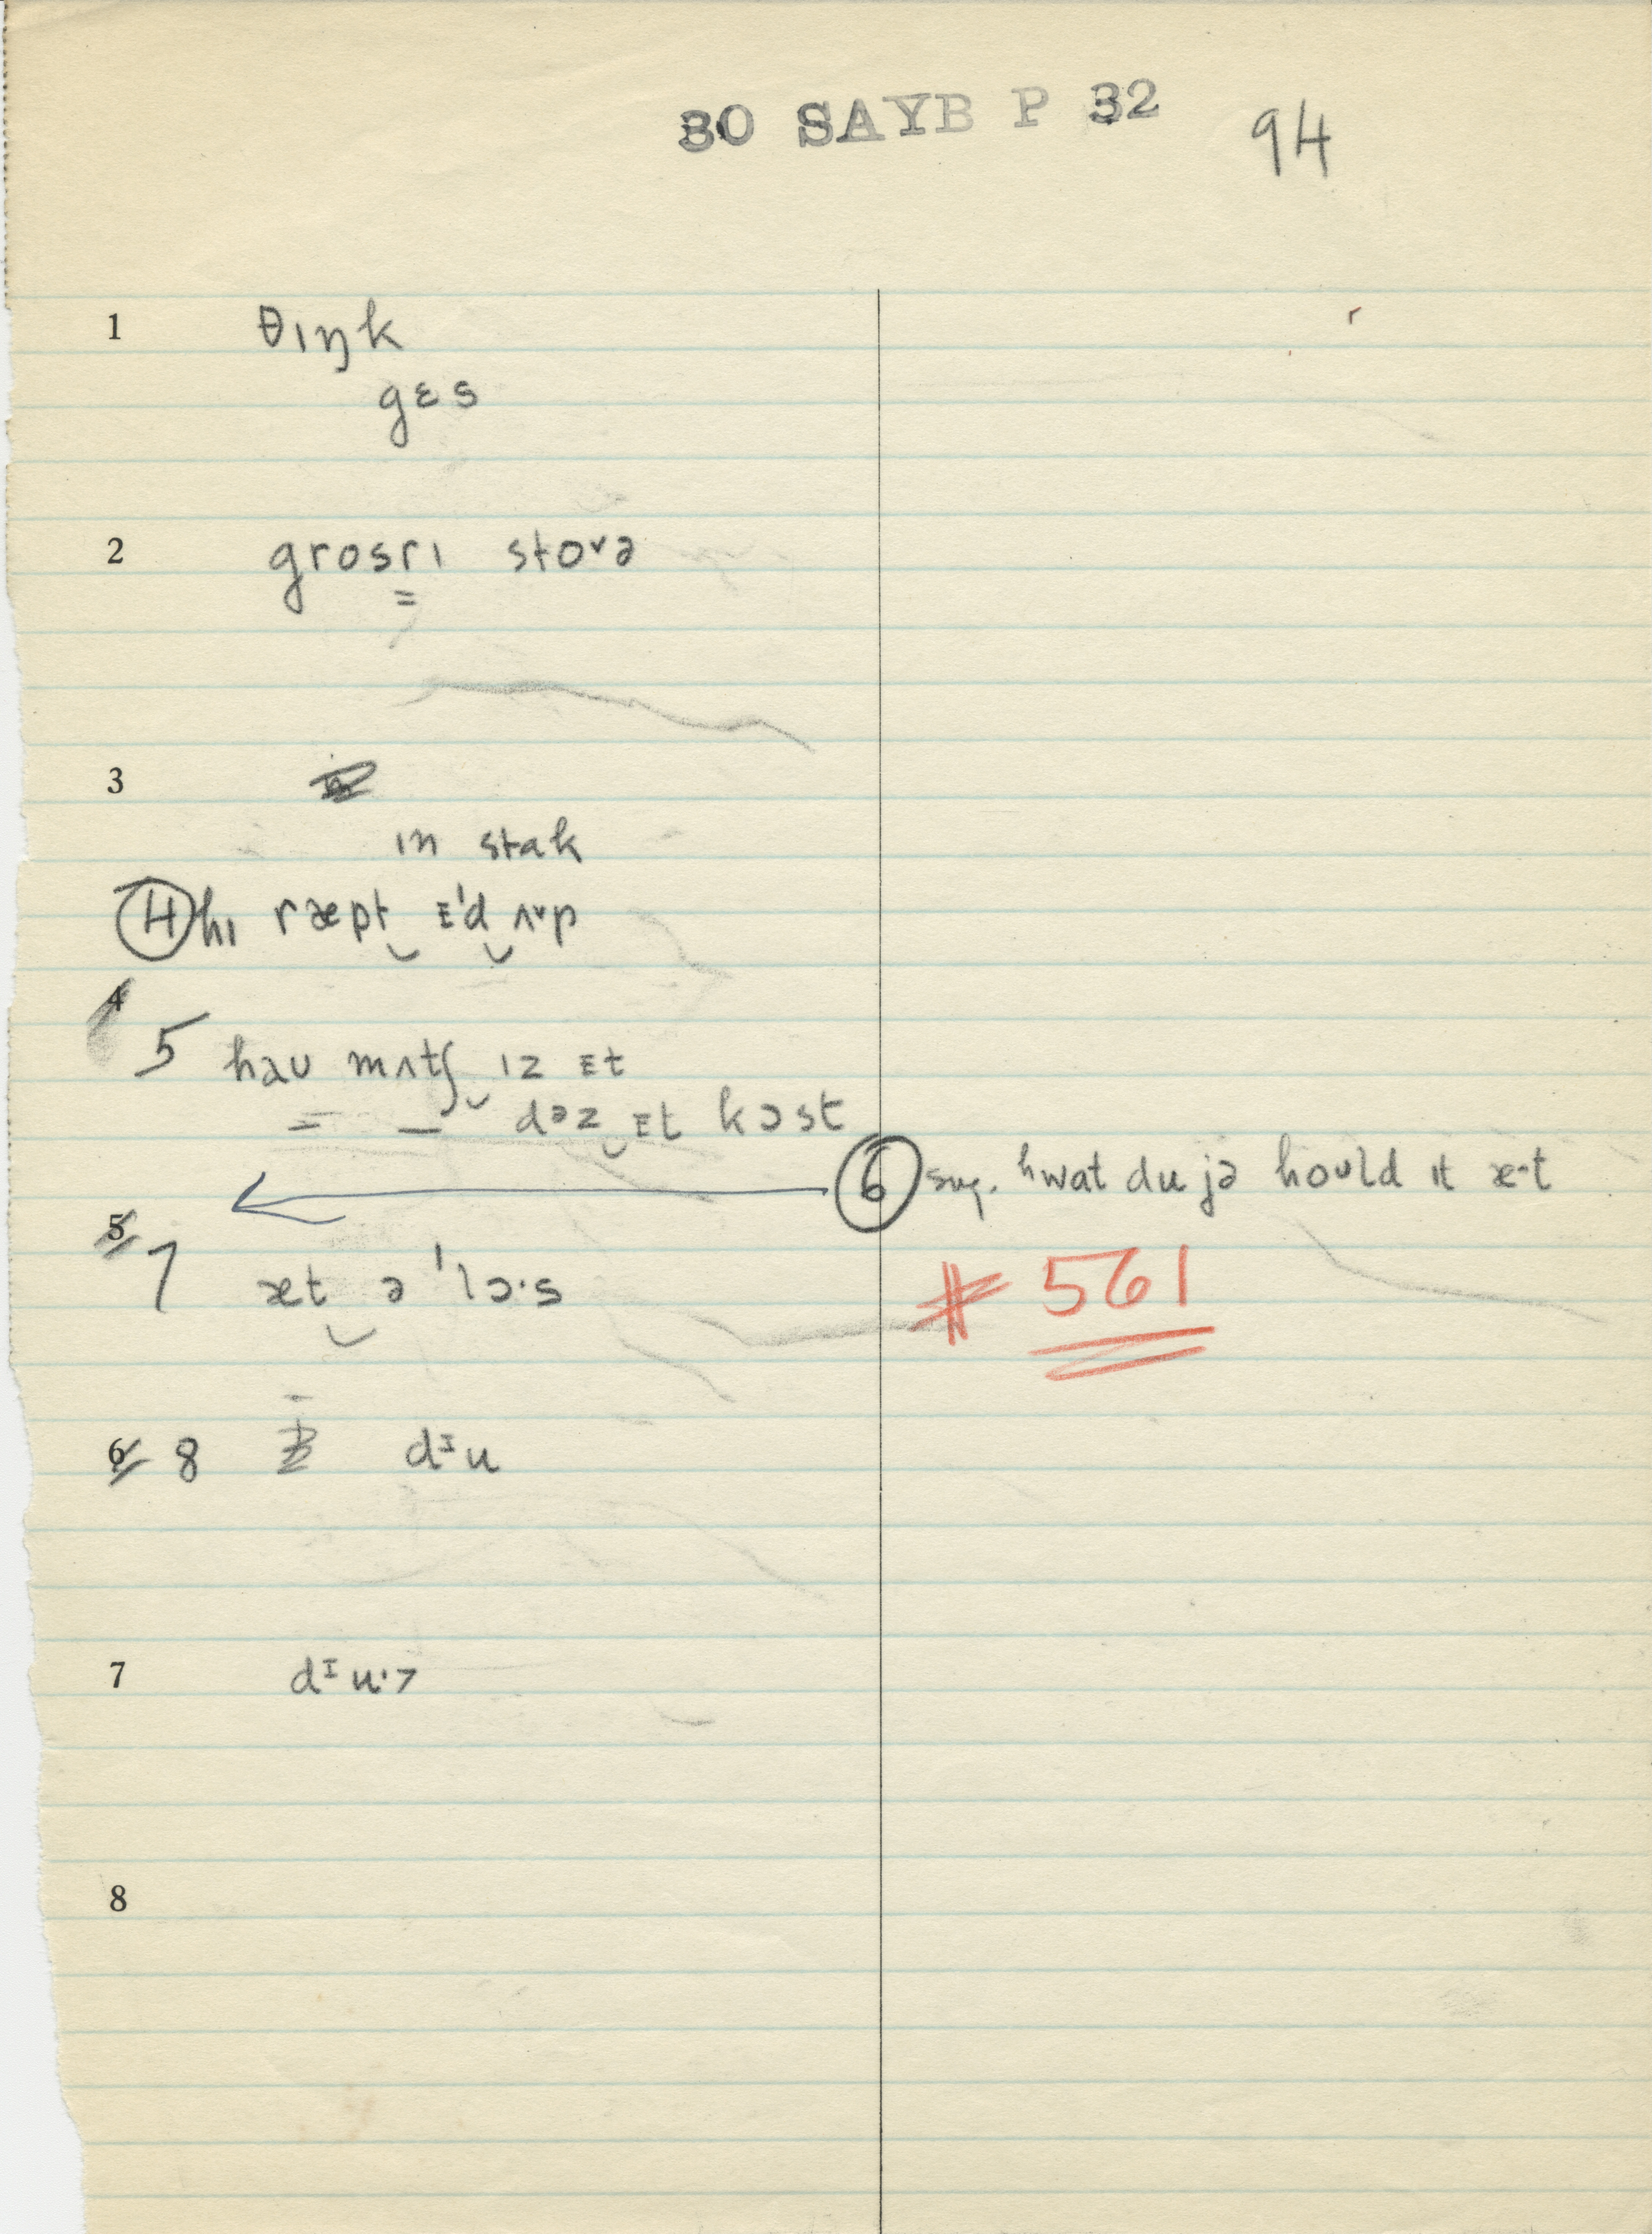 30 SAYB P 32 94
1 θɪŋk
gɛs
2 grosrɪ stoᵛə
=
3
ɪn stak
4 hɪ ræpt‿ɪ'd‿ʌᵛp
4
5 haʊ mʌtʃ‿ɪz ɪt
= — dəz‿ɪt kɔst
6 sug. hwat du jə hoʊld ɪt æ·t
5 7 æt‿ə 'lɔ·s
# 561
6 8 dᶦu
7 dᶦu·>
8